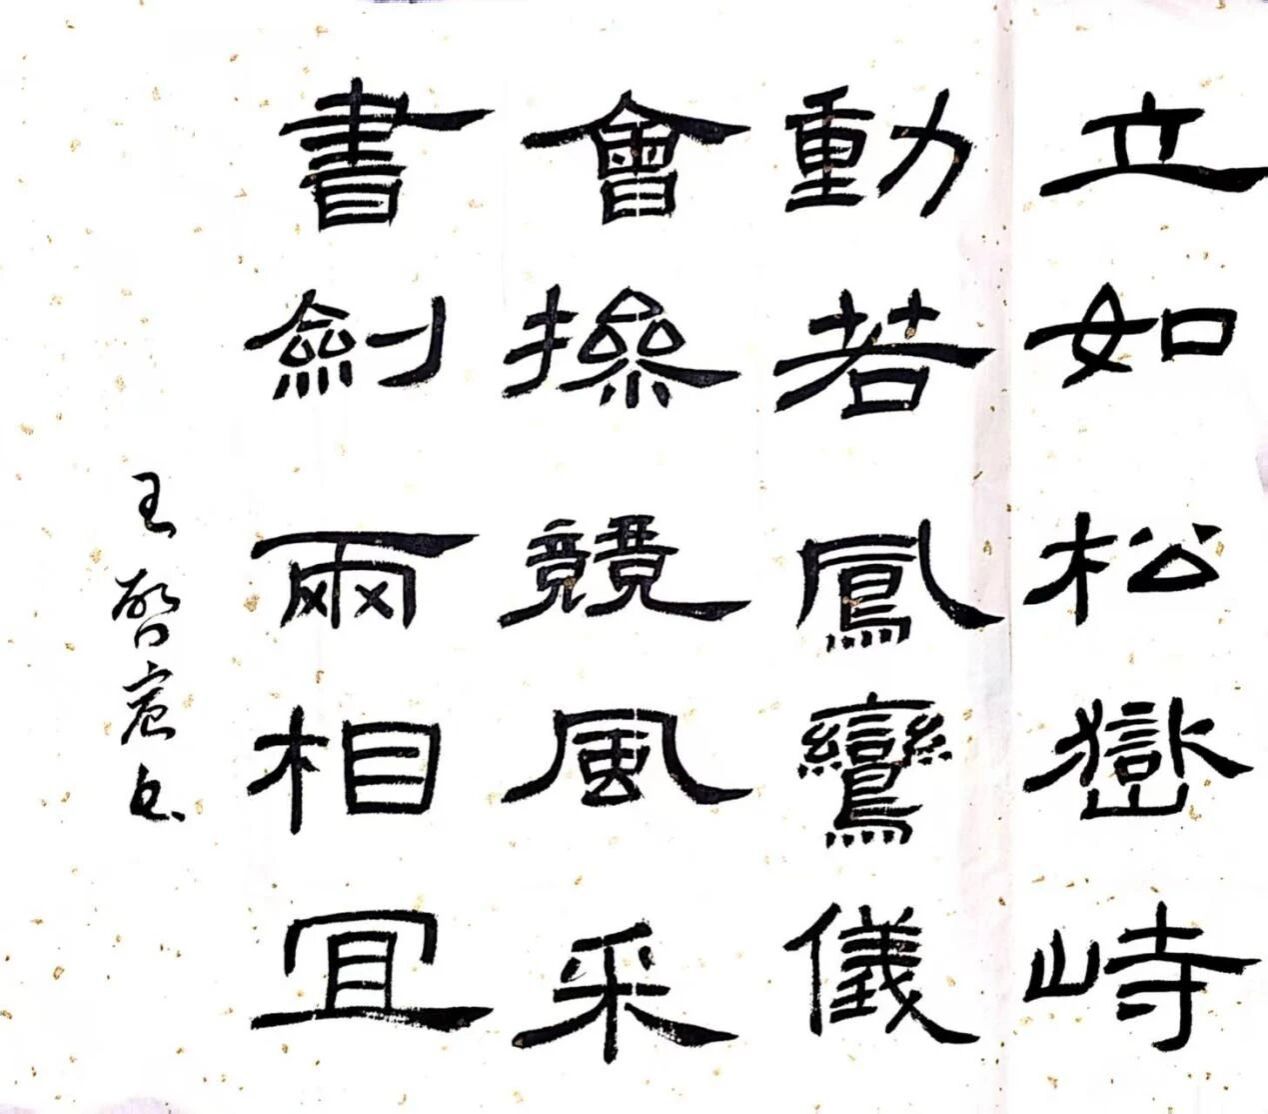 立如松嶽峙
動若鳳鸞儀
會操競風采
書劍兩相宜
王啓宸书